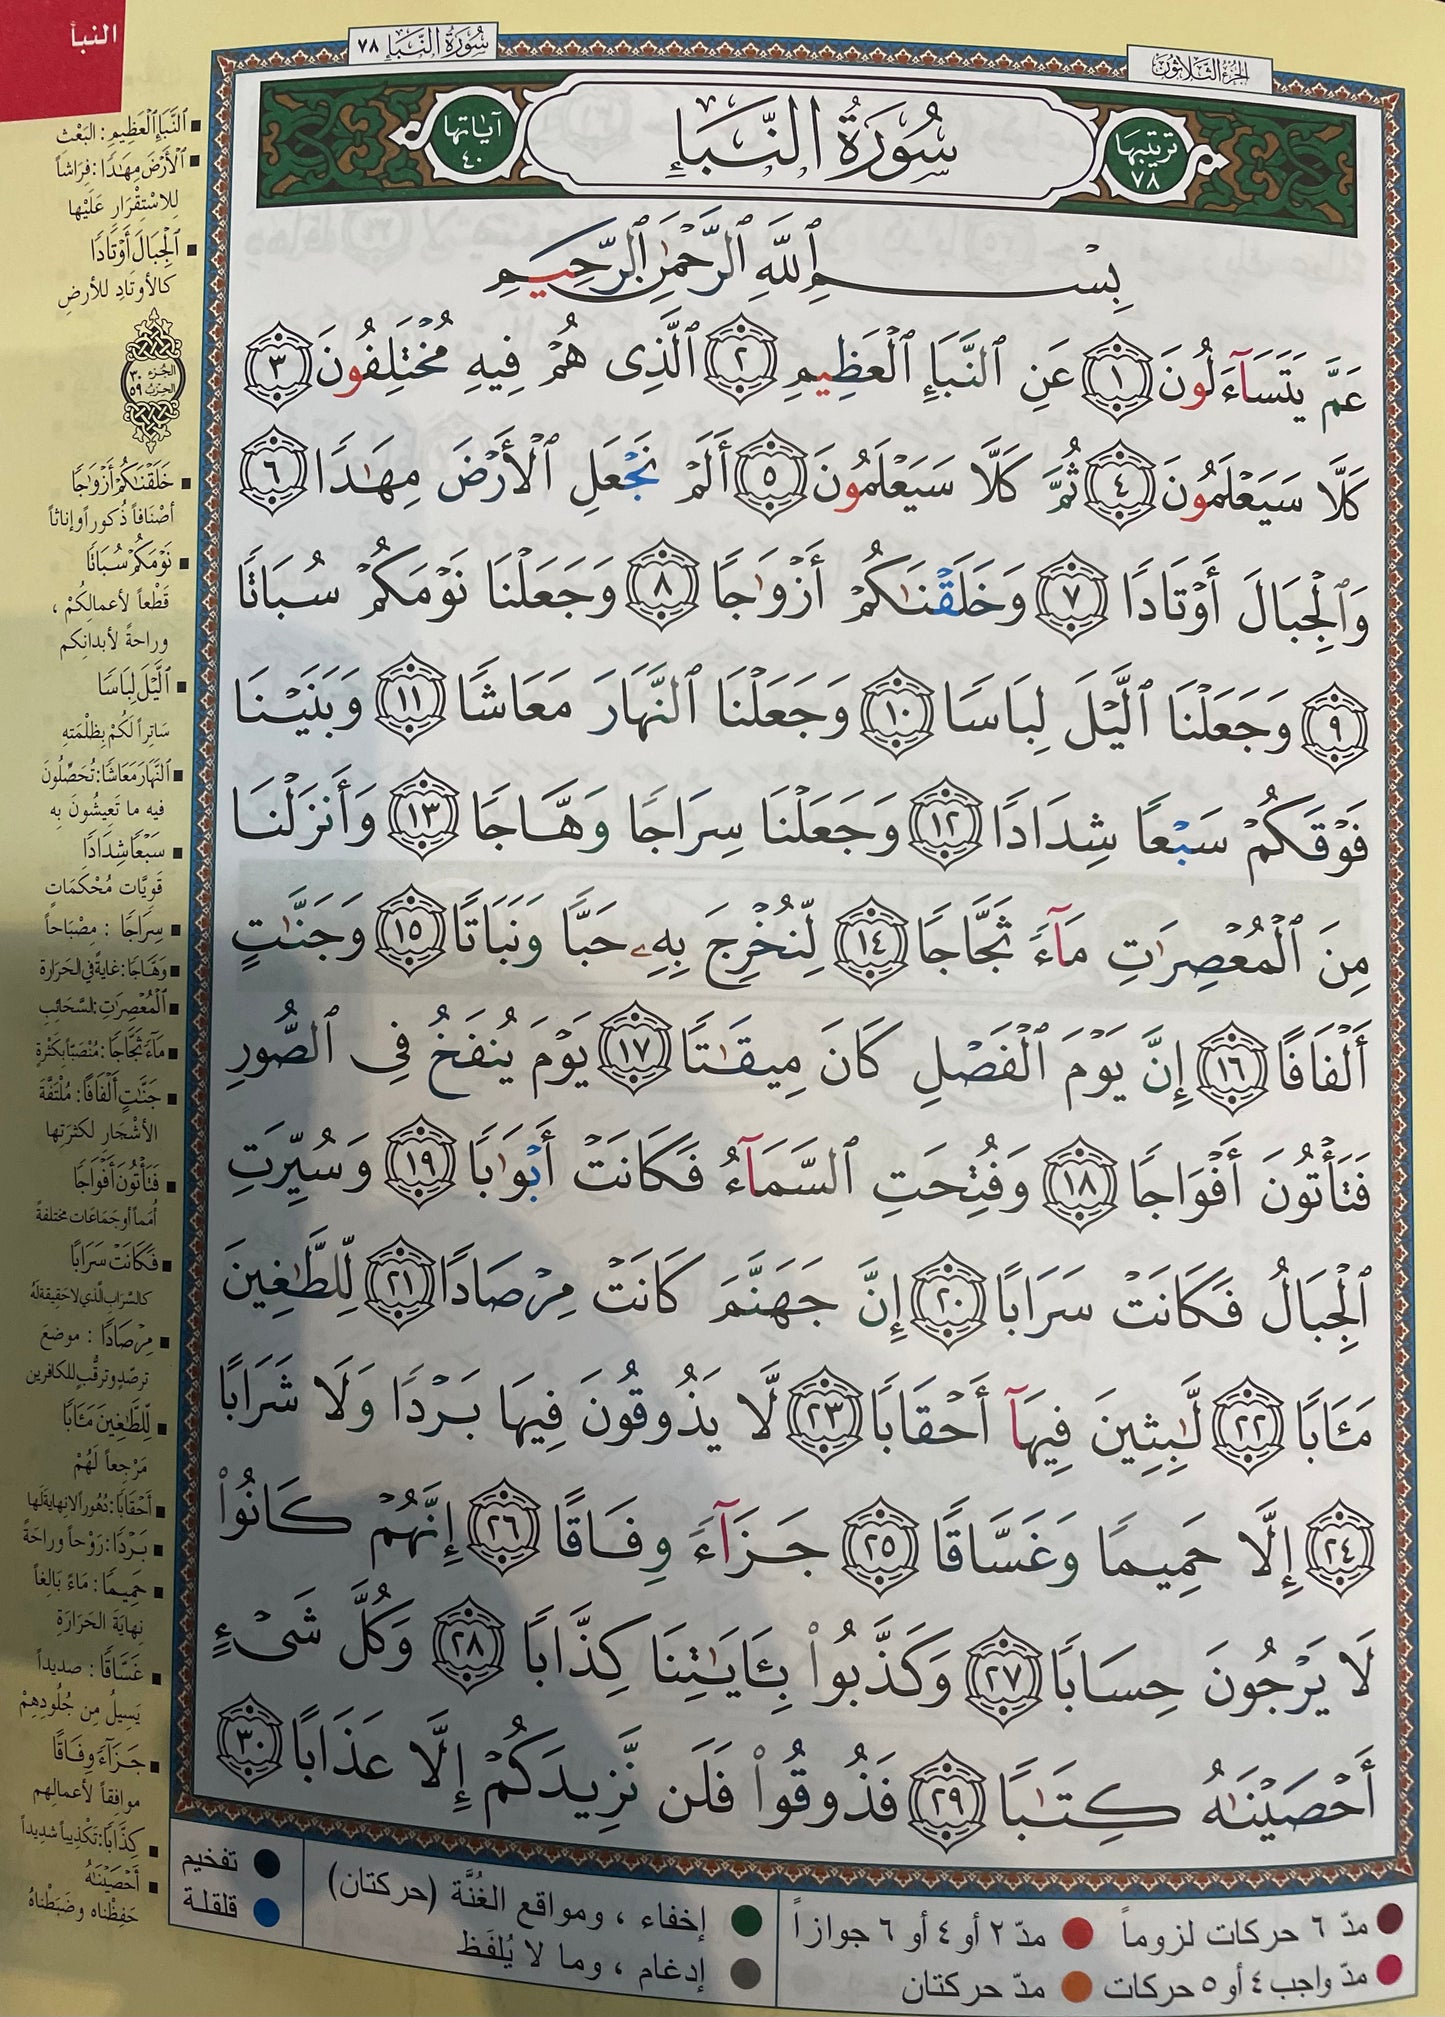 النبأ
الجزء الثلاثون
سُورَةُ النَّبَإِ ٧٨
ترتيبها ٧٨
سُورَةُ النَّبَإِ
آياتها ٤٠
بِسْمِ ٱللَّهِ ٱلرَّحْمَٰنِ ٱلرَّحِيمِ
عَمَّ يَتَسَآءَلُونَ ١ عَنِ ٱلنَّبَإِ ٱلْعَظِيمِ ٢ ٱلَّذِى هُمْ فِيهِ مُخْتَلِفُونَ ٣
كَلَّا سَيَعْلَمُونَ ٤ ثُمَّ كَلَّا سَيَعْلَمُونَ ٥ أَلَمْ نَجْعَلِ ٱلْأَرْضَ مِهَٰدًا ٦
وَٱلْجِبَالَ أَوْتَادًا ٧ وَخَلَقْنَٰكُمْ أَزْوَٰجًا ٨ وَجَعَلْنَا نَوْمَكُمْ سُبَاتًا
٩ وَجَعَلْنَا ٱلَّيْلَ لِبَاسًا ١٠ وَجَعَلْنَا ٱلنَّهَارَ مَعَاشًا ١١ وَبَنَيْنَا
فَوْقَكُمْ سَبْعًا شِدَادًا ١٢ وَجَعَلْنَا سِرَاجًا وَهَّاجًا ١٣ وَأَنزَلْنَا
مِنَ ٱلْمُعْصِرَٰتِ مَآءً ثَجَّاجًا ١٤ لِّنُخْرِجَ بِهِۦ حَبًّا وَنَبَاتًا ١٥ وَجَنَّٰتٍ
أَلْفَافًا ١٦ إِنَّ يَوْمَ ٱلْفَصْلِ كَانَ مِيقَٰتًا ١٧ يَوْمَ يُنفَخُ فِى ٱلصُّورِ
فَتَأْتُونَ أَفْوَاجًا ١٨ وَفُتِحَتِ ٱلسَّمَآءُ فَكَانَتْ أَبْوَٰبًا ١٩ وَسُيِّرَتِ
ٱلْجِبَالُ فَكَانَتْ سَرَابًا ٢٠ إِنَّ جَهَنَّمَ كَانَتْ مِرْصَادًا ٢١ لِّلطَّٰغِينَ
مَـَٔابًا ٢٢ لَّٰبِثِينَ فِيهَآ أَحْقَابًا ٢٣ لَّا يَذُوقُونَ فِيهَا بَرْدًا وَلَا شَرَابًا
٢٤ إِلَّا حَمِيمًا وَغَسَّاقًا ٢٥ جَزَآءً وِفَاقًا ٢٦ إِنَّهُمْ كَانُوا۟
لَا يَرْجُونَ حِسَابًا ٢٧ وَكَذَّبُوا۟ بِـَٔايَٰتِنَا كِذَّابًا ٢٨ وَكُلَّ شَىْءٍ
أَحْصَيْنَٰهُ كِتَٰبًا ٢٩ فَذُوقُوا۟ فَلَن نَّزِيدَكُمْ إِلَّا عَذَابًا ٣٠
النَّبَإِ ٱلْعَظِيمِ : البَعْث
ٱلْأَرْضَ مِهَٰدًا : فِرَاشاً
لِلاسْتِقْرَارِ عَلَيْها
ٱلْجِبَالَ أَوْتَادًا
كالأوتَادِ للأرضِ
الجُزء ٣٠
الحِزْبُ ٥٩
خَلَقْنَٰكُمْ أَزْوَٰجًا
أصْنَافاً ذُكوراً وإناثاً
نَوْمَكُمْ سُبَاتًا
قَطْعاً لأعمالِكُمْ ،
وراحةً لأبدانِكم
ٱلَّيْلَ لِبَاسًا
سَاتِراً لَكُمْ بِظُلْمَتِهِ
ٱلنَّهَارَ مَعَاشًا : تُحَصِّلُونَ
فيه ما تَعِيشُونَ بِه
سَبْعًا شِدَادًا
قَوِيَّات مُحْكَمَاتٍ
سِرَاجًا : مِصْبَاحاً
وَهَّاجًا : غايةً في الحَرَارة
ٱلْمُعْصِرَٰتِ : السَّحَائِب
مَآءً ثَجَّاجًا : مُنْصَبّاً بِكَثْرةٍ
جَنَّٰتٍ أَلْفَافًا : مُلْتَفَّةَ
الأشْجَارِ لِكثرَتِها
فَتَأْتُونَ أَفْوَاجًا
أُمماً أو جَمَاعَات مختلفةً
فَكَانَتْ سَرَابًا
كالسَّرَابِ الَّذي لا حَقِيقةَ لَهُ
مِرْصَادًا : موضعَ
ترصّدٍ وترقُّبٍ للكافرين
لِّلطَّٰغِينَ مَـَٔابًا
مَرْجِعاً لَهُمْ
أَحْقَابًا : دُهُوراً لا نِهايةَ لَها
بَرْدًا : رَوْحاً وراحَةً
حَمِيمًا : مَاءً بَالِغاً
نِهايَةَ الحَرَارَةِ
غَسَّاقًا : صديداً
يَسِيلُ مِن جُلُودِهِمْ
جَزَآءً وِفَاقًا
موافِقاً لأعمالِهِم
كِذَّابًا : تَكْذِيباً شديداً
أَحْصَيْنَٰهُ
حَفِظْناه وضَبَطْناهُ
مدّ ٦ حركات لزوماً
مدّ ٢ أو ٤ أو ٦ جوازاً
إخفاء ، ومواقع الغُنَّة (حركتان)
تفخيم
مدّ واجب ٤ أو ٥ حركات
مدّ حركتان
إدغام ، وما لا يُلفَظ
قلقلة